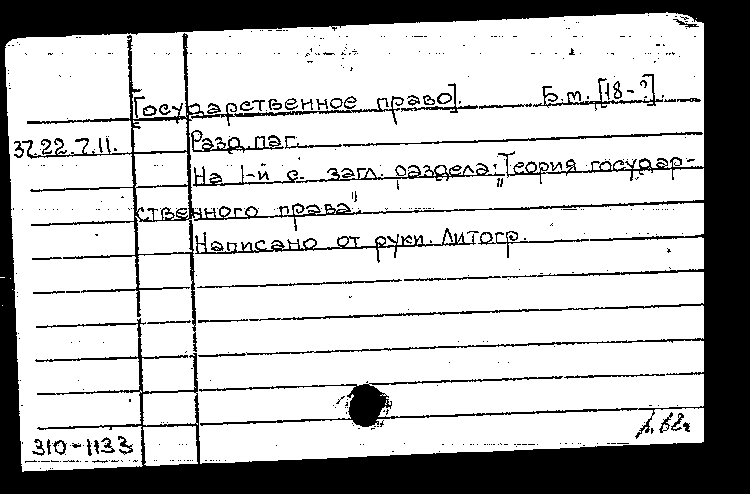 [Государственное право]. Б.т. [18-?].
37.22.7.11. Разд. паг.
На 1-й с. загл. раздела: „Теория государ-
ственного права".
Написано от руки. Литогр.
310-1133